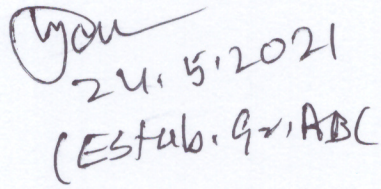 24.5.2021
(Estub. Gr, ABC